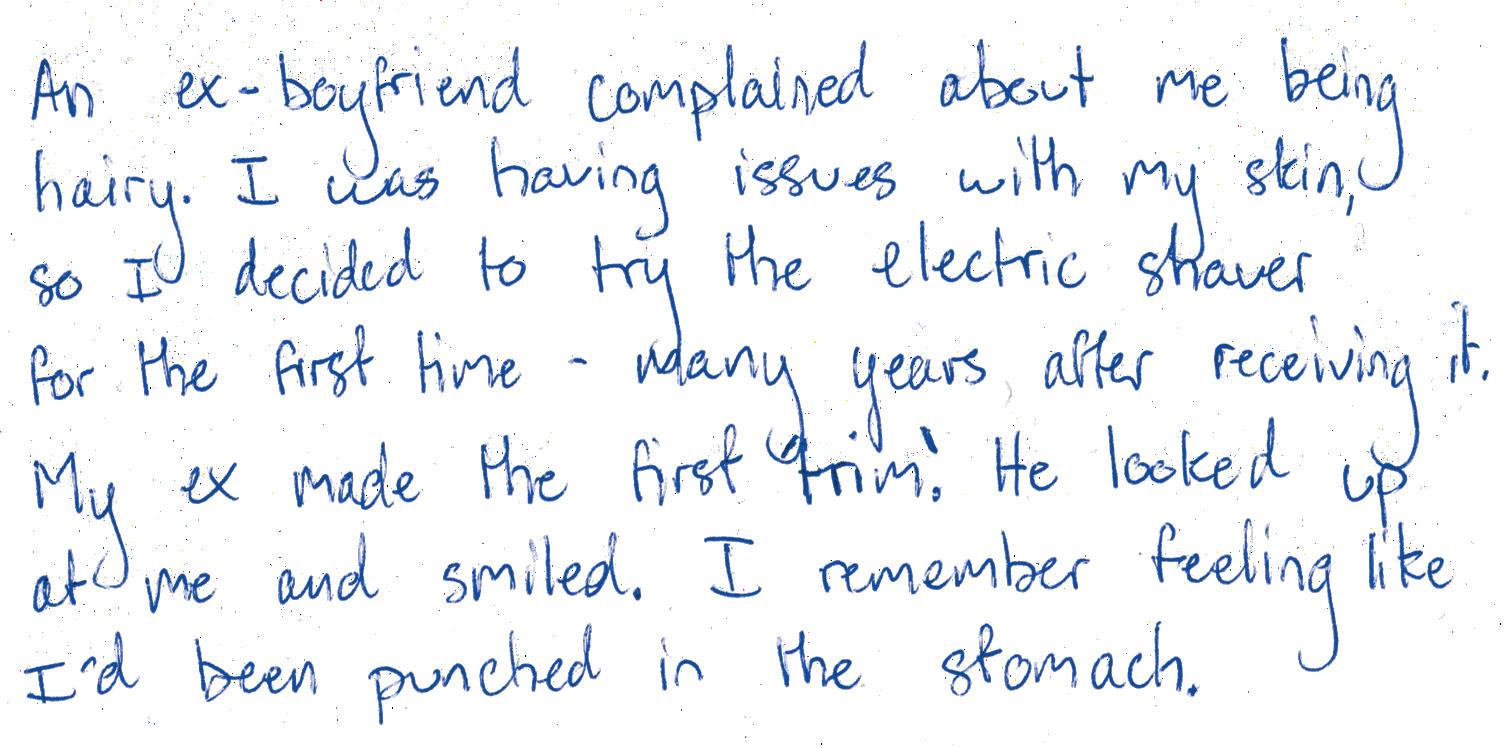 An ex-boyfriend complained about me being
hairy. I was having issues with my skin,
so I decided to try the electric shaver
for the first time - many years after receiving it.
My ex made the first 'trim'. He looked up
at me and smiled. I remember feeling like
I'd been punched in the stomach.